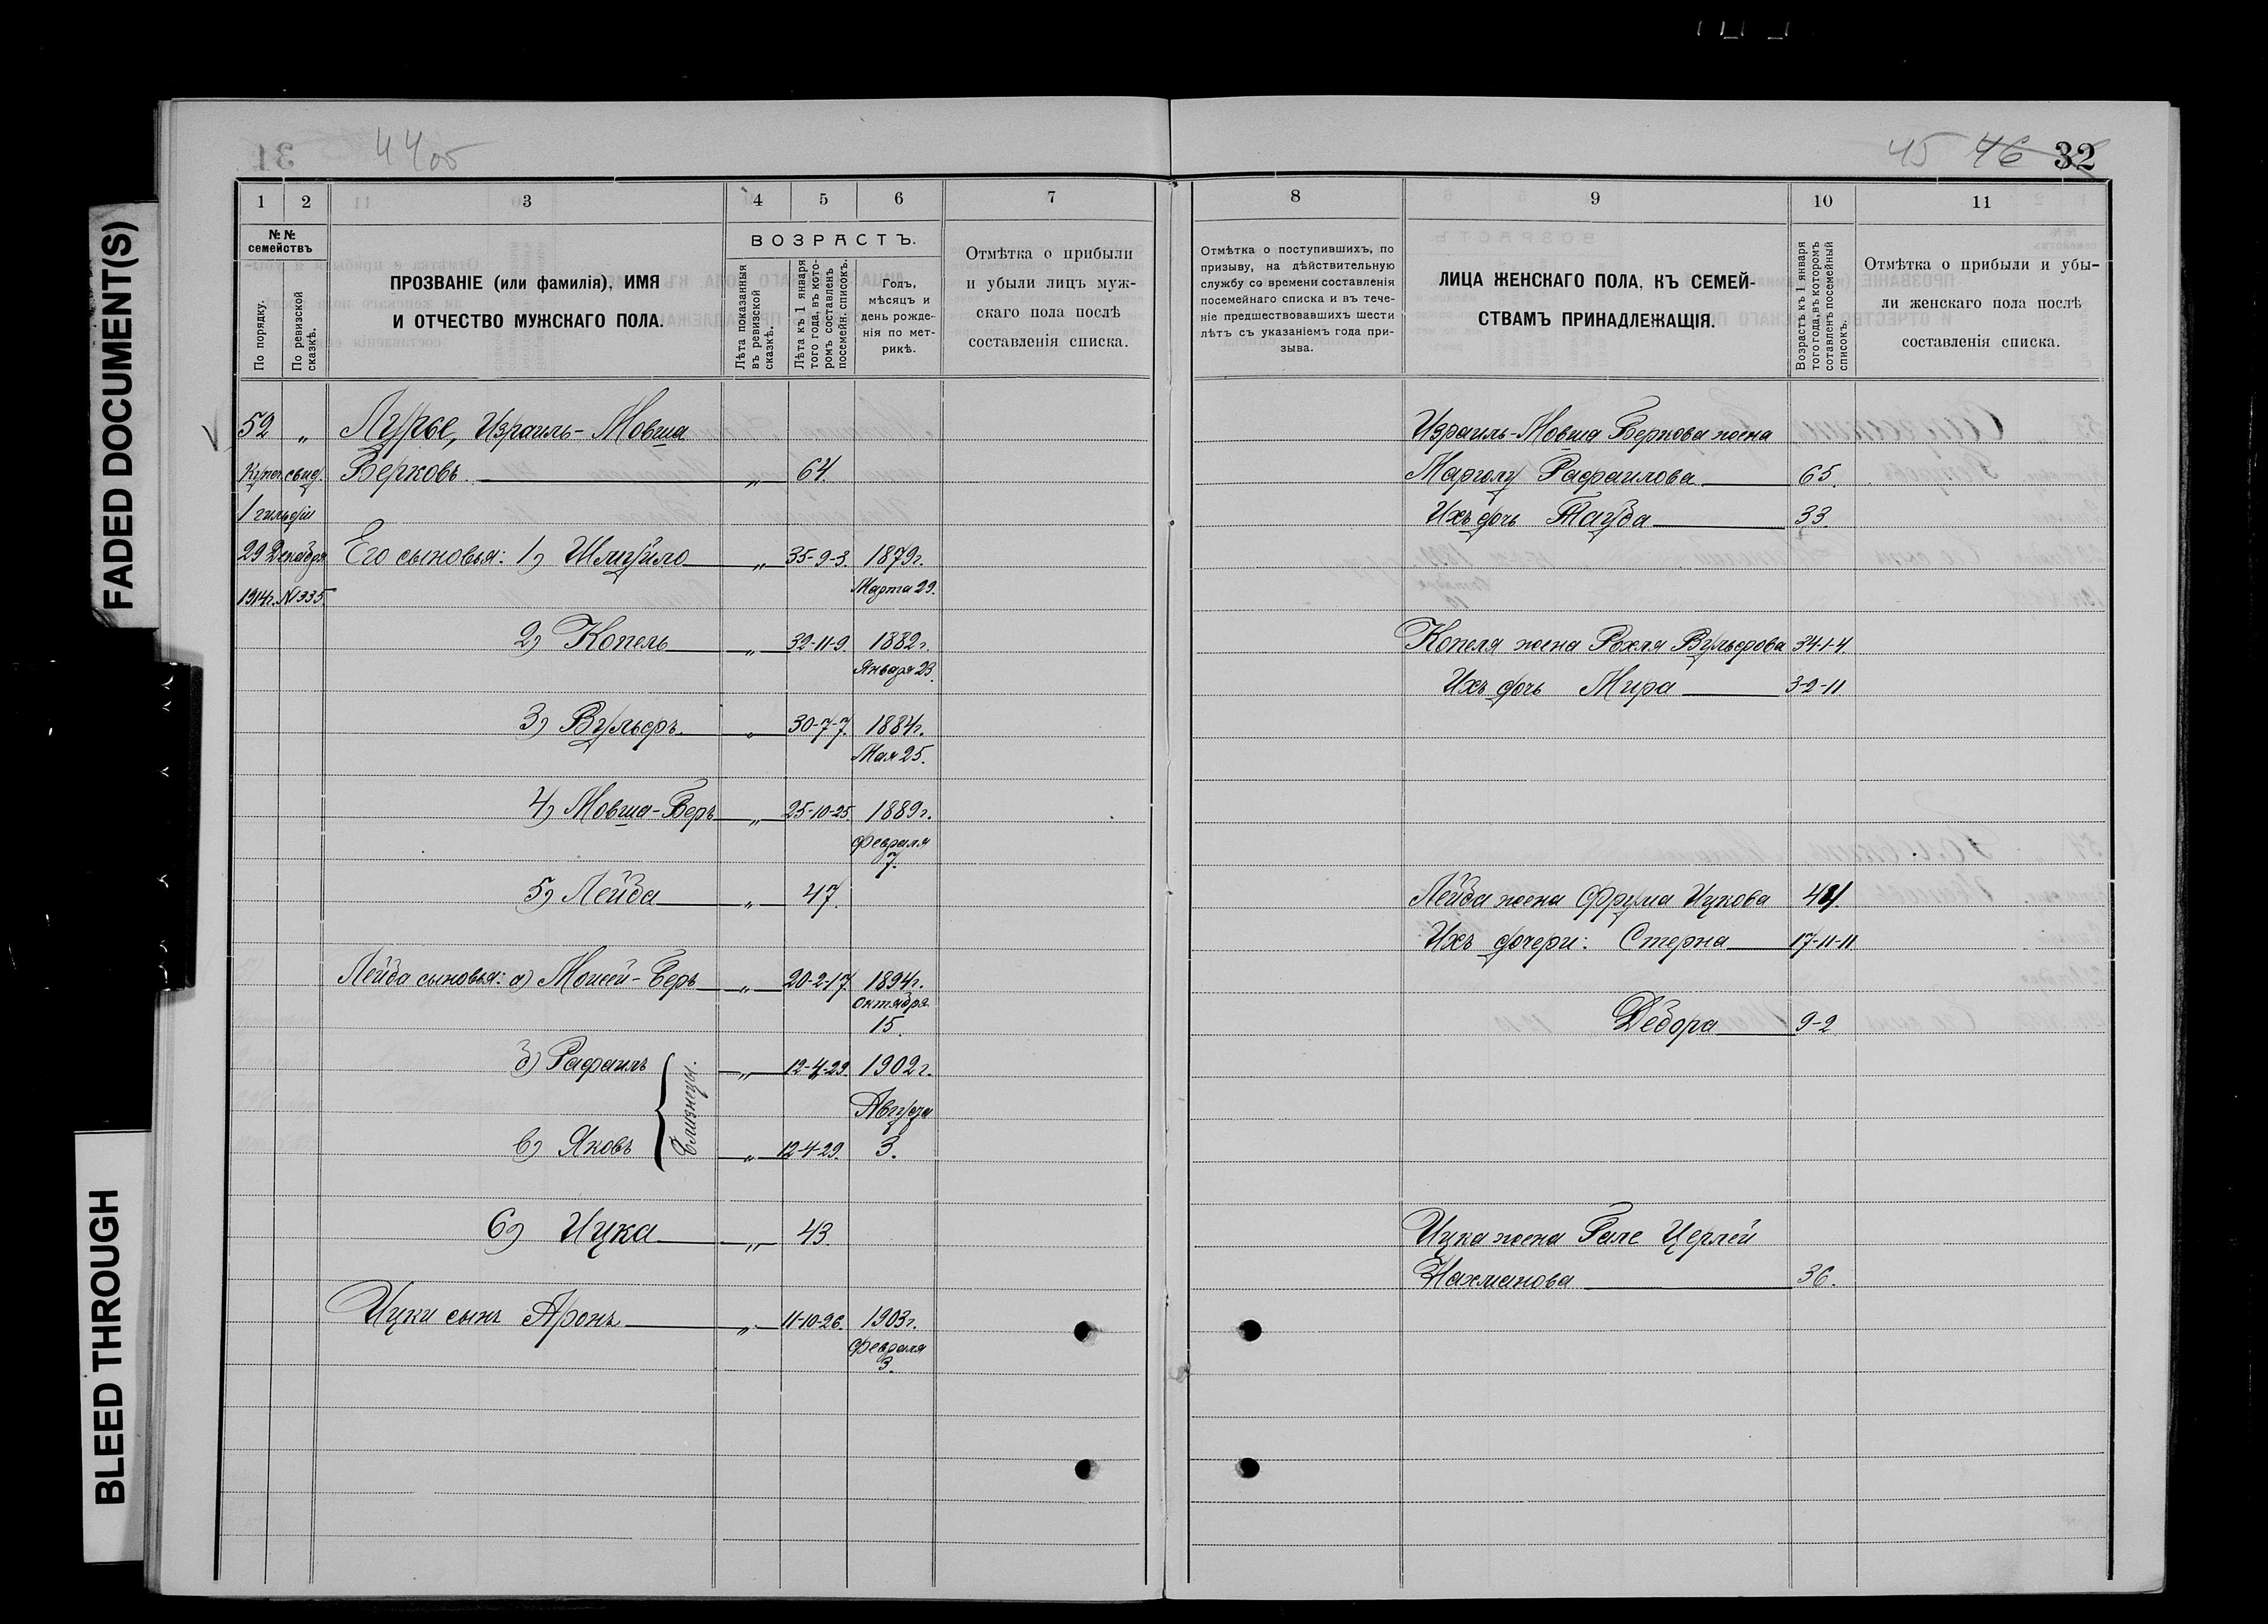 FADED DOCUMENT(S)
BLEED THROUGH
31
44 об
45 46 32
1 2 3 4 5 6 7
№№ семействъ
По порядку.
По ревизской сказкѣ.
ПРОЗВАНІЕ (или фамилія), ИМЯ
И ОТЧЕСТВО МУЖСКАГО ПОЛА.
ВОЗРАСТЪ.
Лѣта показанныя въ ревизской сказкѣ.
Лѣта къ 1 января того года, въ которомъ составленъ посемейн. списокъ.
Годъ, мѣсяцъ и день рожденія по метрикѣ.
Отмѣтка о прибыли
и убыли лицъ муж-
скаго пола послѣ
составленія списка.
52 „ Лурье, Израиль-Мовша
Купеч. свид. Берковъ „ 64.
1 гильдіи
29 Декабря Его сыновья: 1) Шмуйло „ 35-9-3. 1879г.
1914г. №335. Марта 29.
2) Копель „ 32-11-9. 1882г.
Января 23.
3) Вульфъ „ 30-7-7. 1884г.
Мая 25.
4) Мовша-Беръ „ 25-10-25. 1889г.
Февраля
7.
5) Лейба „ 47.
Лейба сыновья: а) Моисей-Беръ „ 20-2-17 1894г.
Октября
15.
б) Рафаилъ „ 12-4-29. 1902г.
Близнецы.
Августа
в) Яковъ „ 12-4-29. 3.
6) Ицка „ 43.
Ицки сынъ Аронъ „ 11-10-26. 1903г.
Февраля
3.
8 9 10 11
Отмѣтка о поступившихъ, по
призыву, на дѣйствительную
службу со времени составленія
посемейнаго списка и въ тече-
ніе предшествовавшихъ шести
лѣтъ съ указаніемъ года при-
зыва.
ЛИЦА ЖЕНСКАГО ПОЛА, КЪ СЕМЕЙ-
СТВАМЪ ПРИНАДЛЕЖАЩІЯ.
Возрастъ къ 1 января того года, въ которомъ сотавленъ посемейный списокъ.
Отмѣтка о прибыли и убы-
ли женскаго пола послѣ
составленія списка.
Израиль-Мовша Беркова жена
Марголу Рафаилова 65.
Ихъ дочь Тауба 33.
Копеля жена Рохля Вульфова 34-1-4.
Ихъ дочь Мира 3-2-11
Лейба жена Фрума Ицкова 44.
Ихъ дочери: Стерна 17-11-11
Дебора 9-2
Ицка жена Гале Церлей
Нахманова 36.